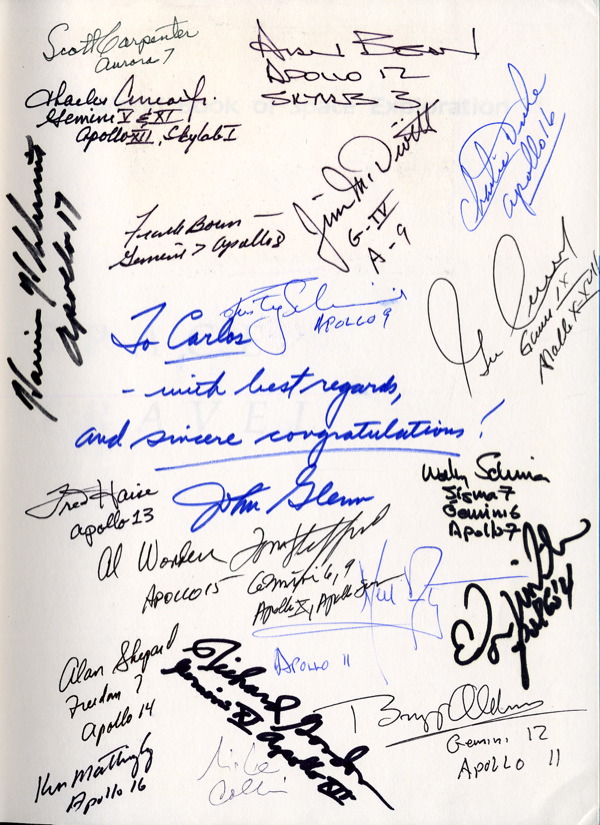 Scott Carpenter
Aurora 7
Alan Bean
APOLLO 12
SKYLAB 3
Charles Conrad Jr.
Gemini V & XI
Apollo XII, Skylab I
Charlie Duke
Apollo 16
Jim McDivitt
G-IV
A-9
Harrison H Schmitt
Apollo 17
Frank Borman
Gemini 7 Apollo 8
Rusty Schweickart
APOLLO 9
Gene Cernan
Gemini IX
Apollo X-XVII
To Carlos
- with best regards,
and sincere congratulations!
John Glenn
Wally Schirra
Sigma 7
Gemini 6
Apollo 7
Fred Haise
Apollo 13
Al Worden
APOLLO 15
Tom Stafford
Gemini 6, 9
Apollo X, Apollo Soyuz
Neil Armstrong
APOLLO 11
Edgar Mitchell
Apollo 14
Alan Shepard
Freedom 7
Apollo 14
Richard Gordon
Gemini XI Apollo XII
Buzz Aldrin
Gemini 12
APOLLO 11
Ken Mattingly
Apollo 16
Mike
Collins